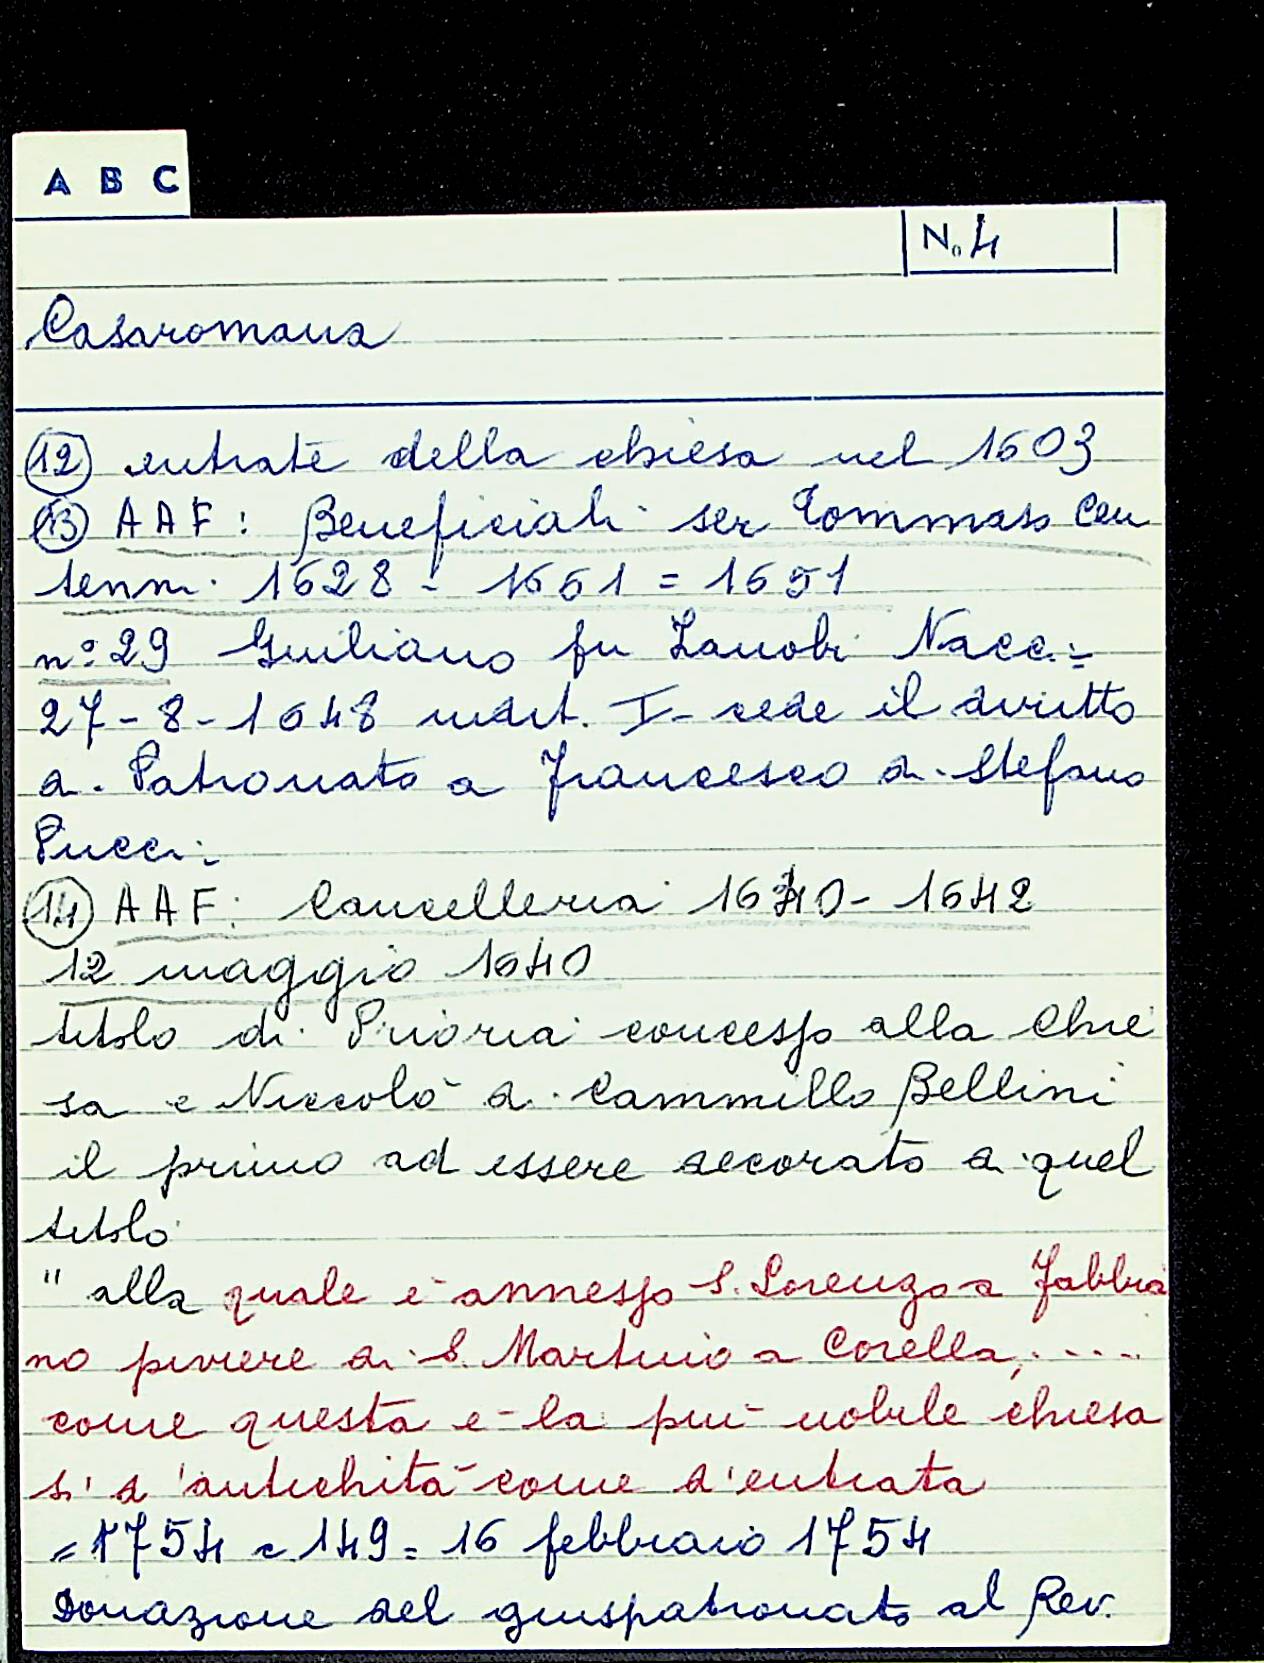 A B C
No 4
Casaromana
(12) entrate della chiesa nel 1603
(13) AAF: Beneficiali ser Tommaso Cen
tenni 1628 - 1661 = 1651
n° 29 Giuliano fu Zanobi Nacci =
27-8-1648 indit. I - cede il diritto
di Patronato a Francesco di Stefano
Pucci.
(14) AAF: Cancelleria 1640 - 1642
12 maggio 1640
titolo di Prioria concesso alla Chie
sa e Niccolò di Cammillo Bellini
il primo ad essere decorato di quel
titolo
" alla quale è annesso S. Lorenzo a Fabbia
no piviere di S. Martino a Corella, .....
come questa è la più nobile chiesa
sì d'antichità come d'entrata
= 1754 c 149 = 16 febbraio 1754
Donazione del giuspatronato al Rev.